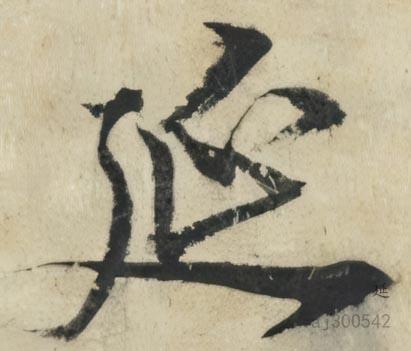 延
延
aj300542